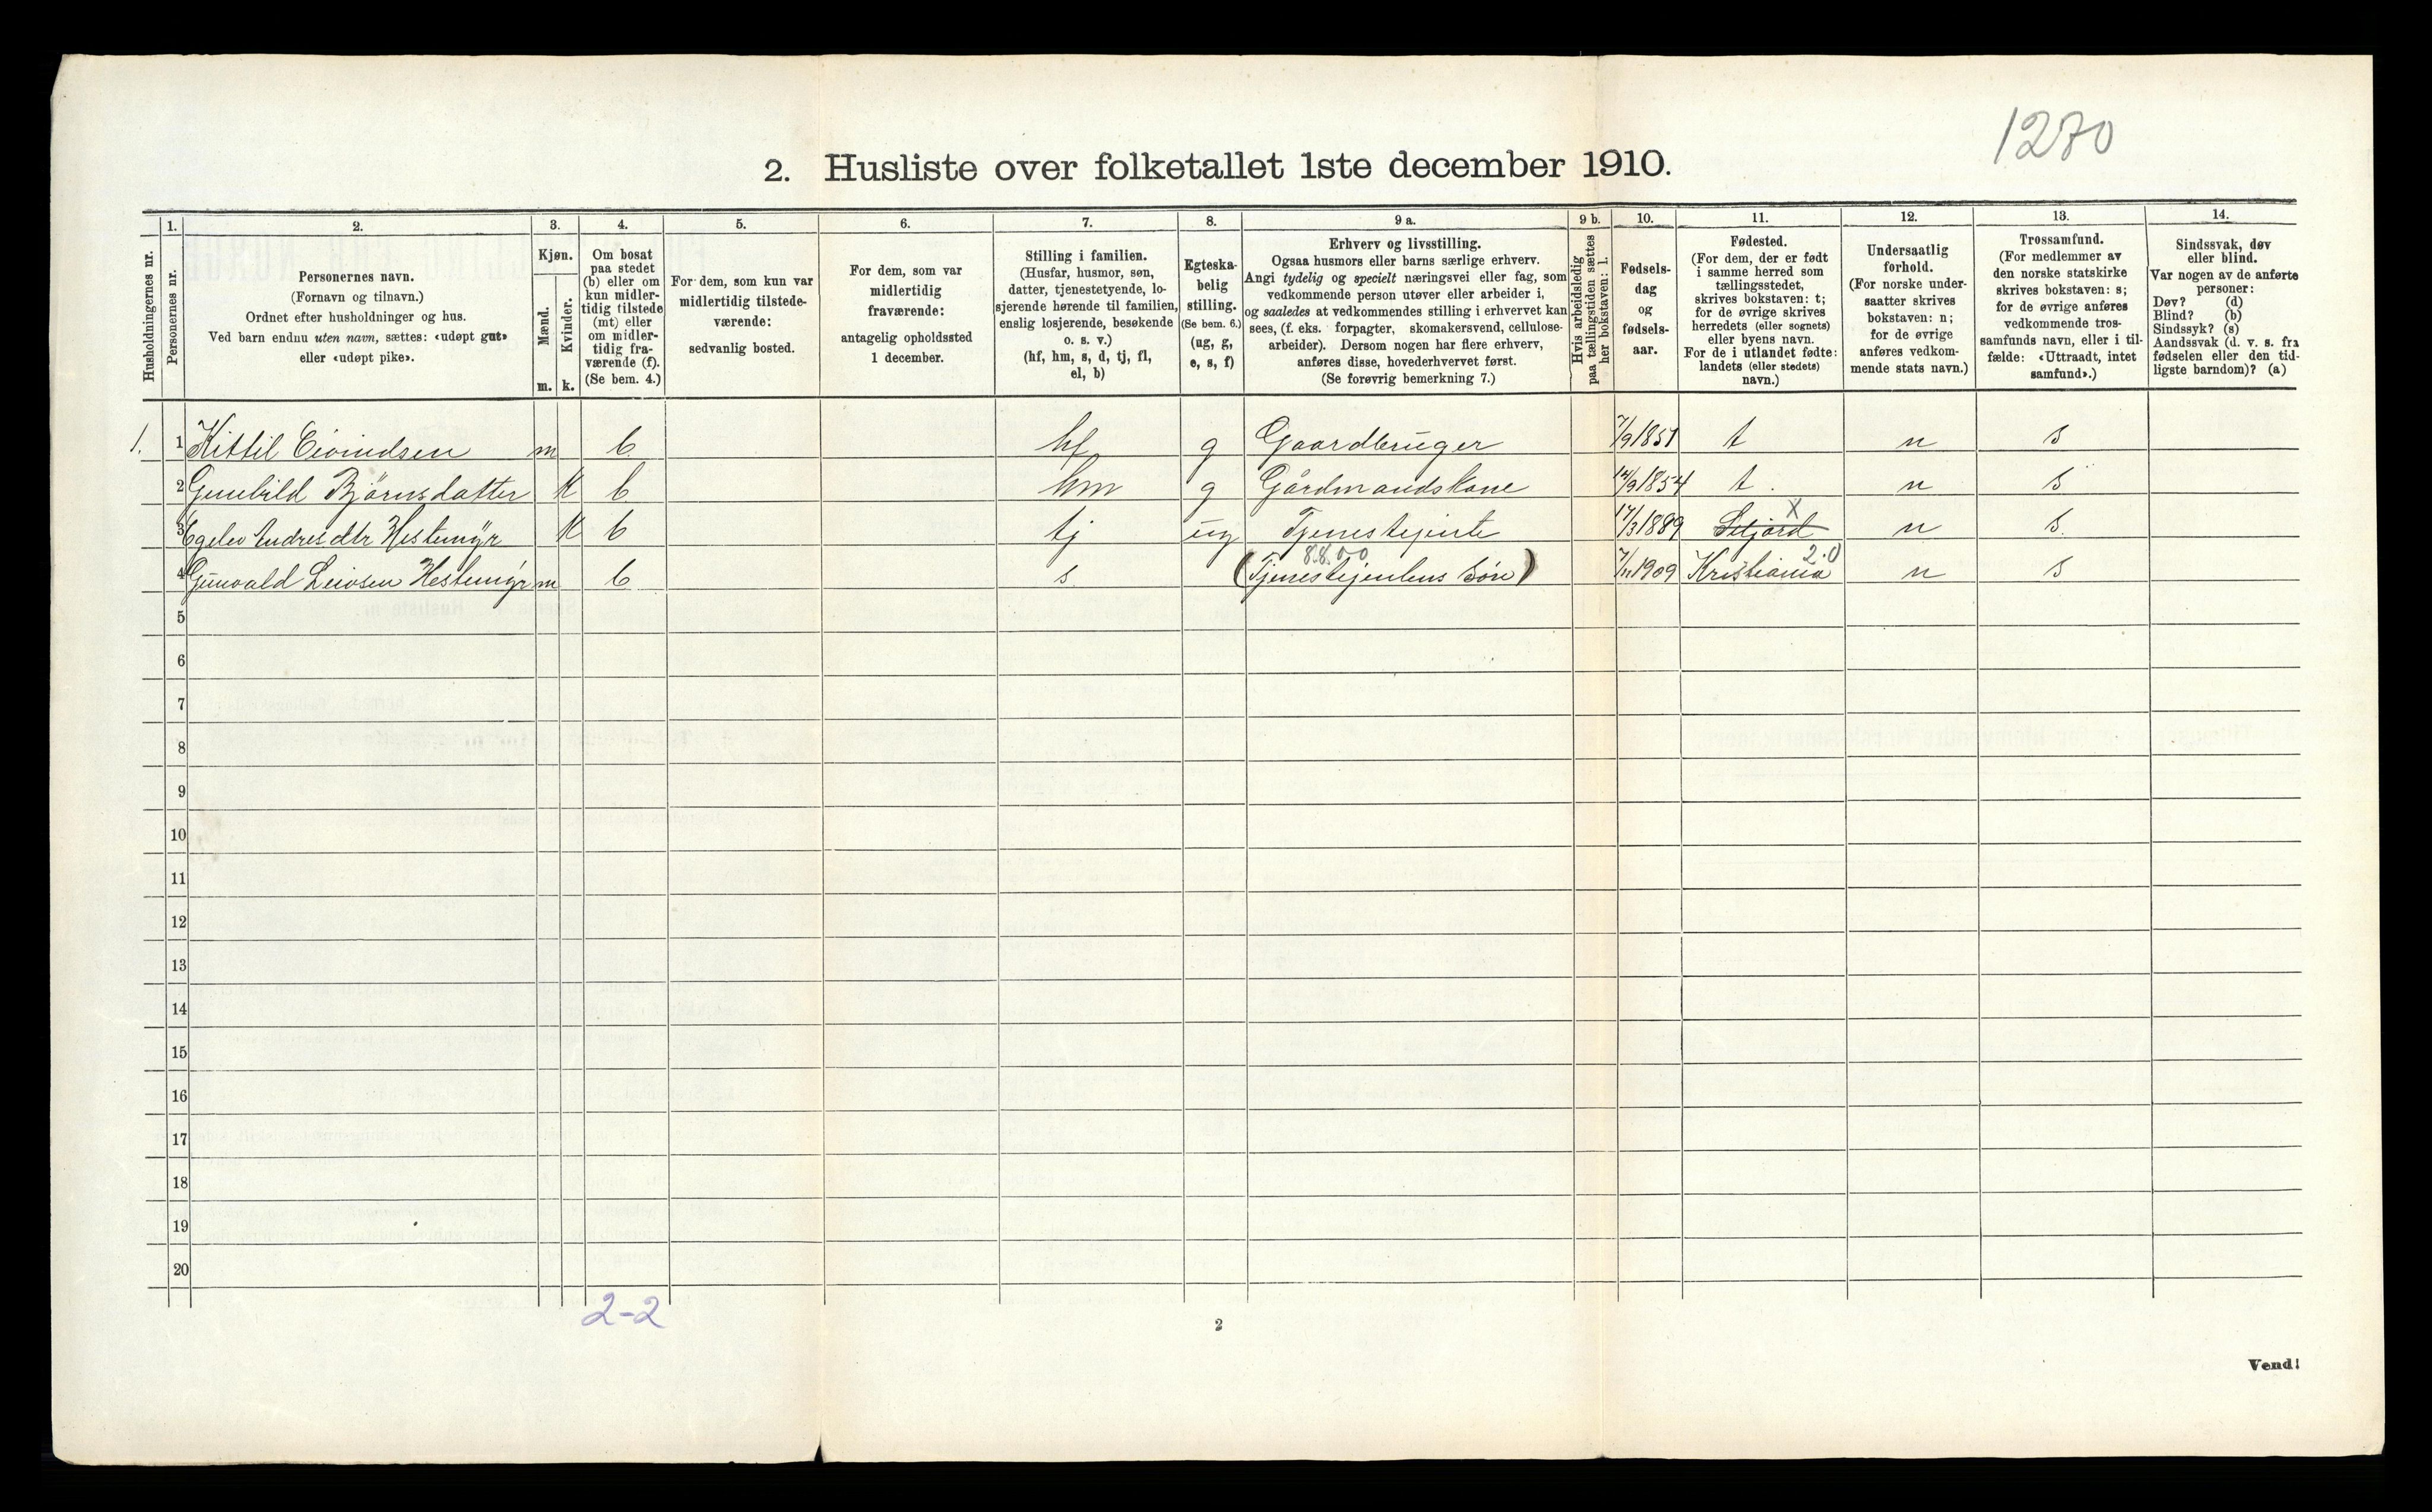 1270
2. Husliste over folketallet 1ste december 1910.
Husholdningernes nr.
1.
Personernes nr.
2.
Personernes navn.
(Fornavn og tilnavn.)
Ordnet efter husholdninger og hus.
Ved barn endnu uten navn, sættes: «udøpt gut»
eller «udøpt pike».
3.
Kjøn.
Mænd.
Kvinder.
m. k.
4.
Om bosat
paa stedet
(b) eller om
kun midler-
tidig tilstede
(mt) eller
om midler-
tidig fra-
værende (f).
(Se bem. 4.)
5.
For dem, som kun var
midlertidig tilstede-
værende:
sedvanlig bosted.
6.
For dem, som var
midlertidig
fraværende:
antagelig opholdssted
1 december.
7.
Stilling i familien.
(Husfar, husmor, søn,
datter, tjenestetyende, lo-
sjerende hørende til familien,
enslig losjerende, besøkende
o. s. v.)
(hf, hm, s, d, tj, fl,
el, b)
8.
Egteska-
belig
stilling.
(Se bem. 6.)
(ug, g,
e, s, f)
9 a.
Erhverv og livsstilling.
Ogsaa husmors eller barns særlige erhverv.
Angi tydelig og specielt næringsvei eller fag, som
vedkommende person utøver eller arbeider i,
og saaledes at vedkommendes stilling i erhvervet kan
sees, (f. eks. forpagter, skomakersvend, cellulose-
arbeider). Dersom nogen har flere erhverv,
anføres disse, hovederhvervet først.
(Se forøvrig bemerkning 7.)
9 b.
Hvis arbeidsledig
paa tællingstiden sættes
her bokstaven: l.
10.
Fødsels-
dag
og
fødsels-
aar.
11.
Fødested.
(For dem, der er født
i samme herred som
tællingsstedet,
skrives bokstaven: t;
for de øvrige skrives
herredets (eller sognets)
eller byens navn.
For de i utlandet fødte:
landets (eller stedets)
navn.)
12.
Undersaatlig
forhold.
(For norske under-
saatter skrives
bokstaven: n;
for de øvrige
anføres vedkom-
mende stats navn.)
13.
Trossamfund.
(For medlemmer av
den norske statskirke
skrives bokstaven: s;
for de øvrige anføres
vedkommende tros-
samfunds navn, eller i til-
fælde: «Uttraadt, intet
samfund».)
14.
Sindssvak, døv
eller blind.
Var nogen av de anførte
personer:
Døv? (d)
Blind? (b)
Sindssyk? (s)
Aandssvak (d. v. s. fra
fødselen eller den tid-
ligste barndom)? (a)
1. 1 Kittil Eivindsen m b hf g Gaardbruger 7/9 1851 t n s
2 Gunhild Bjørnsdatter K b hm g Gårdmandskone 14/9 1854 t. n s
X
3 Egelev Andresdtr Hestemyr K b tj ug Tjenestejente 17/3 1889 Seljord n s.
88.00 2.0
4 Gunvald Leivsen Hestemyr m b s (Tjenestejentens Søn) 7/11 1909 Kristiania n s
5
6
7
8
9
10
11
12
13
14
15
16
17
18
19
20
2-2
2
Vend!